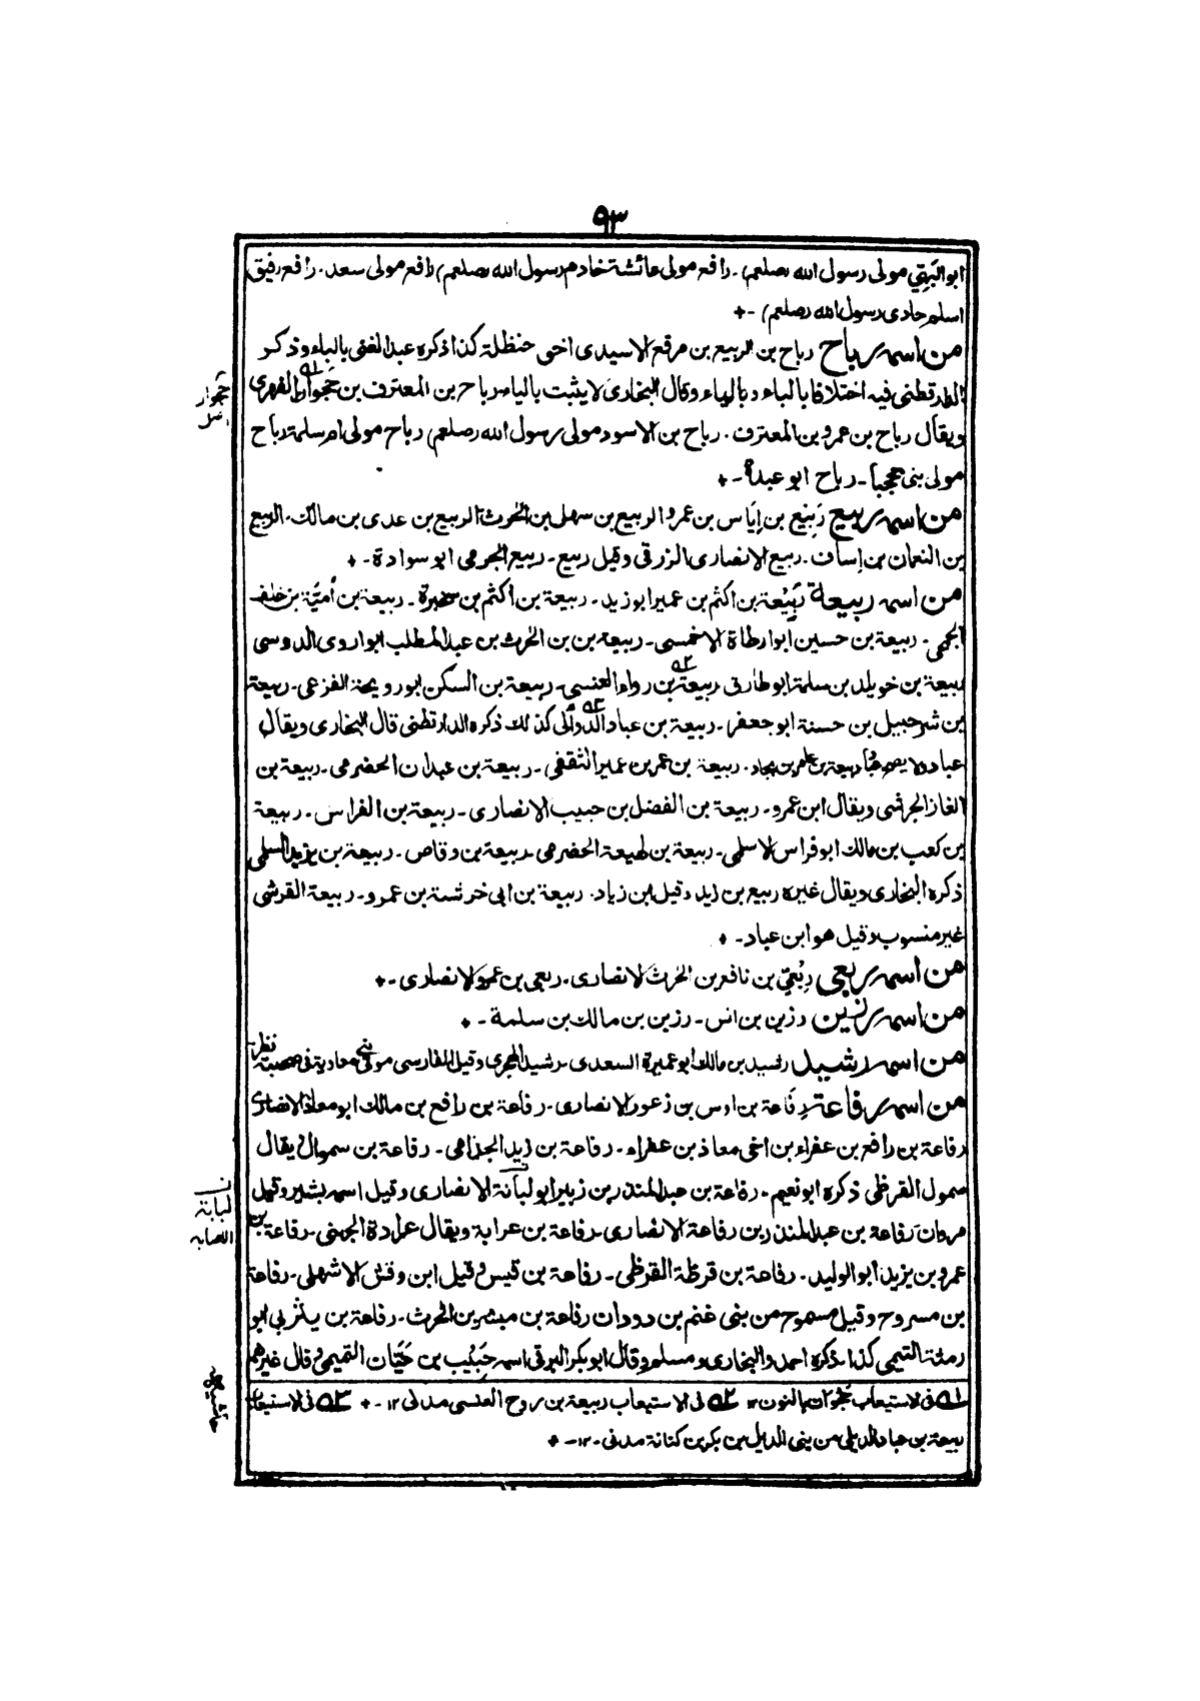 ٩٣
ابو البَهِيّ مولى رسول الله (صلعم)۔ رافع مولى عائشة خادم رسول الله (صلعم) رافع مولى سعد۔ رافع رفيق
اسلم حادى رسول الله (صلعم)۔+
من اسمه رباح رباح بن الربيع بن مرقع الاسيدى اخى حنظلة كذا ذكره عبد الغنى بالباء وذكر
الدارقطنى فيه اختلافا بالباء وبالياء وقال البخارى لا يثبت بالياء رباح بن المعترف بن حَجوان الفهرى
ويقال رباح بن عمرو بن المعترف۔ رباح بن الاسود مولى رسول الله (صلعم) رباح مولى ام سلمة رباح
مولى بنى جحجبا۔ رباح ابو عبدة۔+
من اسمه ربيع رَبِيع بن إيَاس بن عمرو الربيع بن سهل بن الحرث الربيع بن عدى بن مالك۔ الربيع
بن النعمان بن إساف۔ ربيع الانصارى الزرقى وقيل ربيع۔ ربيع الجرمى ابو سوادة۔+
من اسمه ربيعة رَبِيْعة بن اكثم بن عمير ابو زيد۔ ربيعة بن اكثم بن سخبرة۔ ربيعة بن أُميَّة بن خلف
الجمحى۔ ربيعة بن حسين ابو ارطاة الاخمسى۔ ربيعة بن بن الحرث بن عبد المطلب ابو اروى الدوسى
ربيعة بن خويلد بن سلمة ابو طارق ربيعة بن رواء العنسى۔ ربيعة بن السكن ابو رويحة الفزعى۔ ربيعة
بن شرحبيل بن حسنة ابو جعفر۔ ربيعة بن عباد الدؤلى كذلك ذكره الدارقطنى قال البخارى ويقال
عباد ولا يصح ربيعة بن عامر بن بجاد۔ ربيعة بن عمر بن عمير الثقفى۔ ربيعة بن عيدان الحضرمى۔ ربيعة بن
الغاز الجرشى ويقال ابن عمرو۔ ربيعة بن الفضل بن حبيب الانصارى۔ ربيعة بن الفراس۔ ربيعة
بن كعب بن مالك ابو فراس الاسلمى۔ ربيعة بن لهيعة الحضرمى۔ ربيعة بن وقاص۔ ربيعة بن يزيد السلمى
ذكره البخارى ويقال غيره ربيع بن زيد وقيل ابن زياد۔ ربيعة بن ابى خرشة بن عمرو۔ ربيعة القرشى
غير منسوب وقيل هو ابن عباد۔+
من اسمه ربعى رِبْعِيّ بن نافع بن الحرث الانصارى۔ ربعى بن عمرو الانصارى۔+
من اسمه رزين رزين بن انس۔ رزين بن مالك بن سلمة۔+
من اسمه رشيد رشيد بن مالك ابو عميرة السعدى۔ رشيد الهجرى وقيل الفارسى مولى بنى معاوية فى صحبته نظر
من اسمه رفاعة رِفَاعة بن اوس بن زعور الانصارى۔ رفاعة بن رافع بن مالك ابو معاذ الانصارى
رفاعة بن رافع بن عفراء بن اخى معاذ بن عفراء۔ رفاعة بن زيد الجذامى۔ رفاعة بن سموال يقال
سمول القرظى ذكره ابو نعيم۔ رفاعة بن عبد المنذر بن زبير ابو لبانة الانصارى وقيل اسمه بشير وقيل
مروان رفاعة بن عبد المنذر بن رفاعة الانصارى۔ رفاعة بن عرابة ويقال عرادة الجهنى۔ رفاعة بن
عمرو بن يزيد ابو الوليد۔ رفاعة بن قرظة القرظى۔ رفاعة بن قيس وقيل ابن وقش الاشهلى۔ رفاعة
بن مسروح وقيل مسموح من بنى غنم بن دودان رفاعة بن مبشر بن الحرث۔ رفاعة بن يثربى ابو
رمثة التيمى كذا ذكره احمد والبخارى ومسلم وقال ابو بكر البرقى اسمه حَبِيْب بن حَيَّان التميمى وقال غيرهم
١ فى الاستيعاب حجوان بالنون ١٢ ٢ فى الاستيعاب ربيعة بن روح العنسى مدنى ١٢۔+ ٣ فى الاستيعاب
ربيعة بن عباد الديلى من بنى الديل بن بكر بن كنانة مدنى۔١٢۔+
حجوار
اصل
ن
لبابة
الصابه